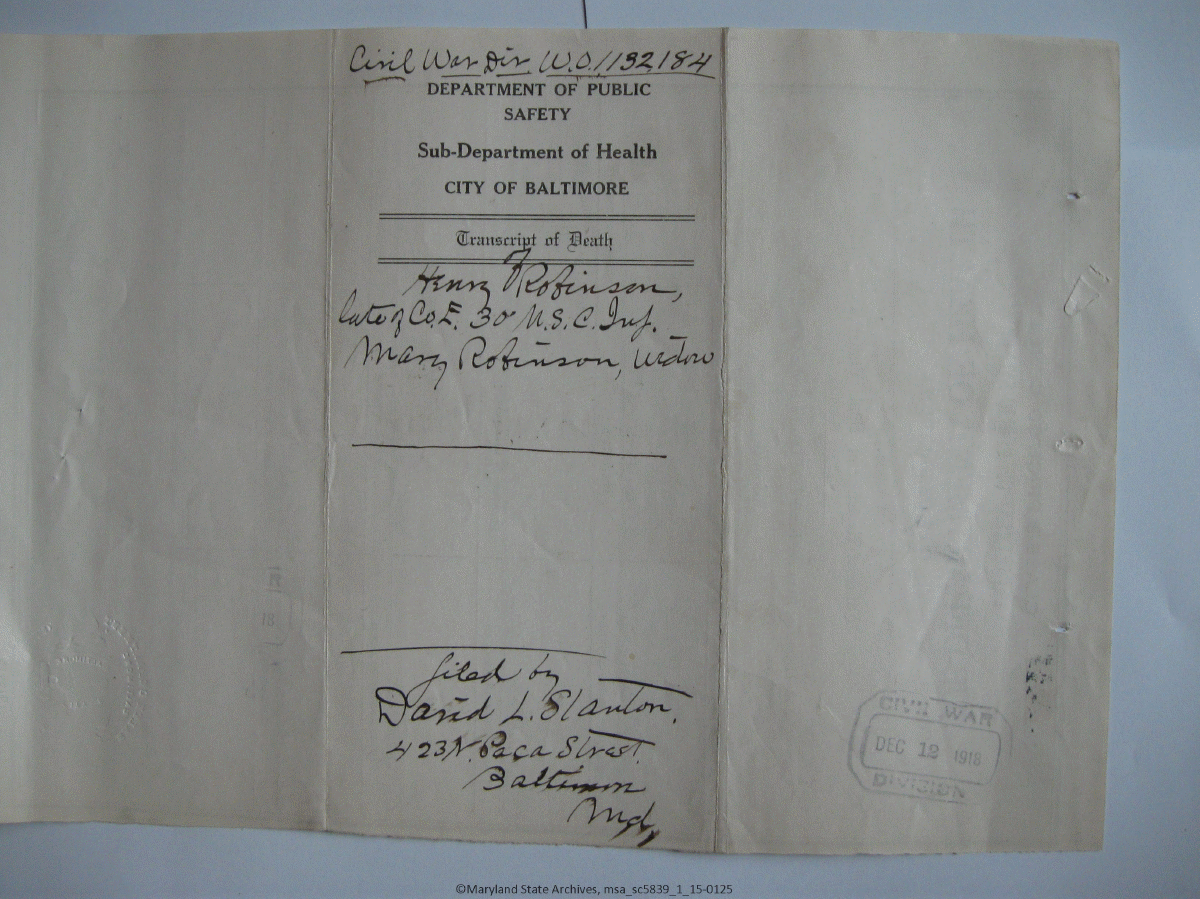 Civil War Div. W.O. 1132,184
DEPARTMENT OF PUBLIC
SAFETY
Sub-Department of Health
CITY OF BALTIMORE
Transcript of Death
of
Henry Robinson,
late of Co. E. 30" U.S.C. Inf.
Mary Robinson, widow
filed by
David L. Stanton.
423 N. Paca Street.
Baltimore
Md,
CIVIL WAR
DEC 12 1918
DIVISION
©Maryland State Archives, msa_sc5839_1_15-0125